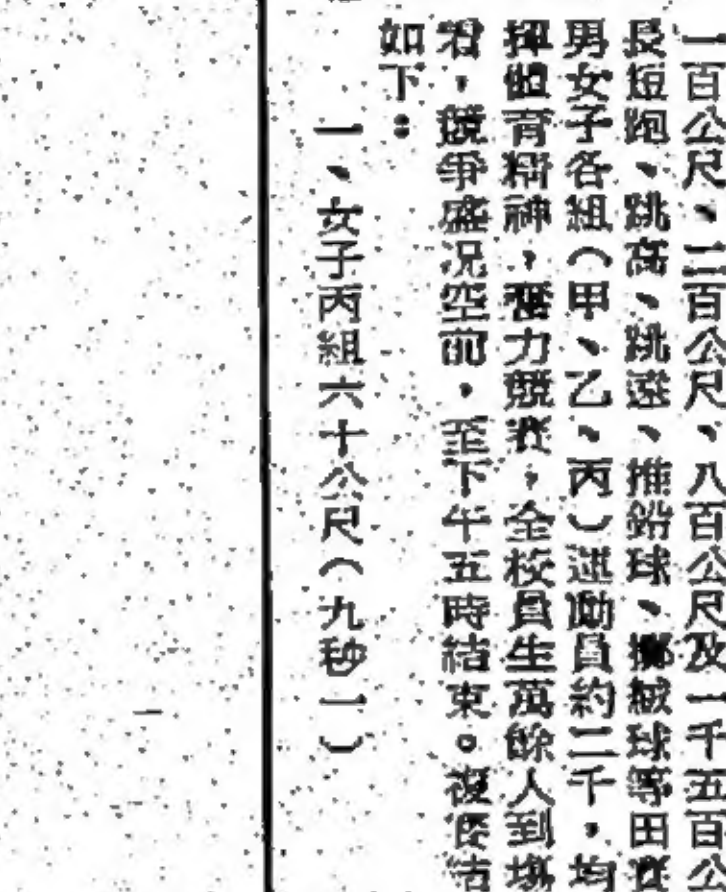 一百公尺、二百公尺、八百公尺及一千五百公
長短跑、跳高、跳遠、推鉛球、擲絨球等田賽
男女子各組（甲、乙、丙）運動員約二千，均
揮體育精神，奮力競賽，全校員生萬餘人到場
，競爭盛況空前，至下午五時結束。復
如下：
一、女子丙組六十公尺（九秒一）